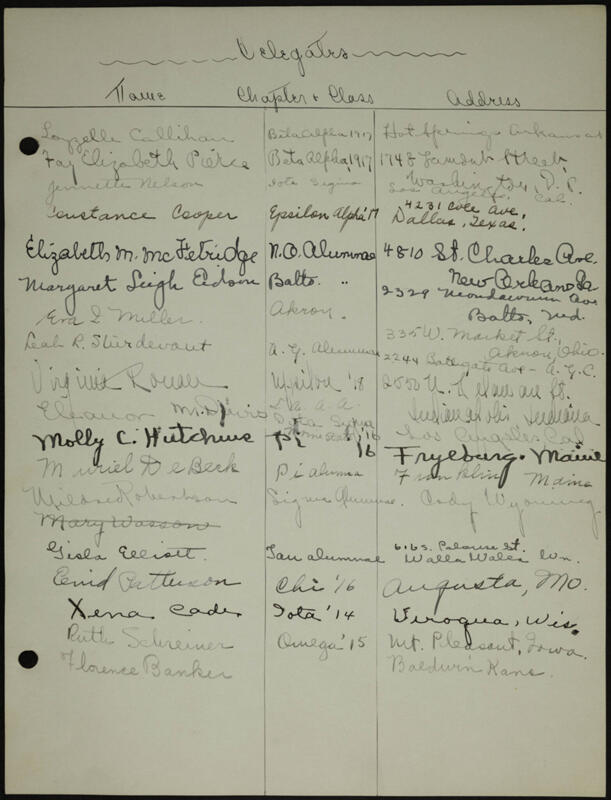 Delegates
Name Chapter + Class Address
Lazzelle Callihan Beta Alpha 1917 Hot Springs Arkansas
Fay Elizabeth Pierce Beta Alpha, 1917 1748 Lamont Street,
Washington, D.C.
Jennette Nelson Iota Sigma Los Angeles, Cal.
Constance Cooper Epsilon Alpha '17 4231 Cole Ave,
Dallas, Texas.
Elizabeth M. McFetridge N.O. Alumnae 4810 St. Charles Ave.
New Orleans La
Margaret Leigh Eidson Balto. " 2329 Ave
Balto, Md.
Eva I Miller. Akron. 335 W. Market St.,
Akron, Ohio.
Leah R. Sturdevant A. G. Alumnae 2244 Ave - A.G.C.
Virginia Upsilon '18 St.
Indianapolis Indiana
Eleanor M. Davis L.A. A.A. Los Angeles Cal
Molly C. Hutchins Pi '16 Fryeburg, Maine
Muriel DeBeck Pi alumna Franklin Maine
Robertson Sigma Alumnae. Cody Wyoming.
Mary Wasson
Gisla Elliott. Tau alumnae 616 S. Palouse St.
Walla Walla Wn.
Enid Patterson Chi '16 Augusta, Mo.
Xena Cade Iota '14 Viroqua, Wis.
Ruth Schreiner Omega '15 Mt. Pleasant, Iowa.
Florence Banker Baldwin Kans.